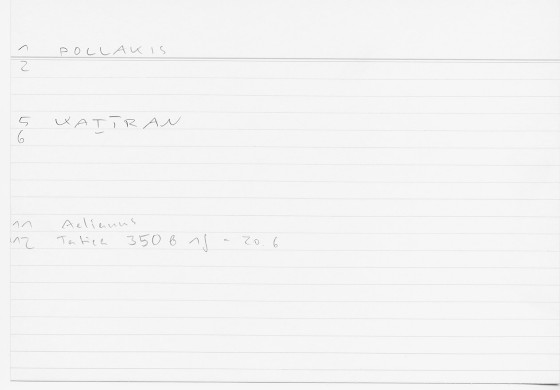 1 POLLAKIS
2
5 KAṬT̄RAN
6
11 Aelianus
12 Tatice 350 B 1f - 20 6